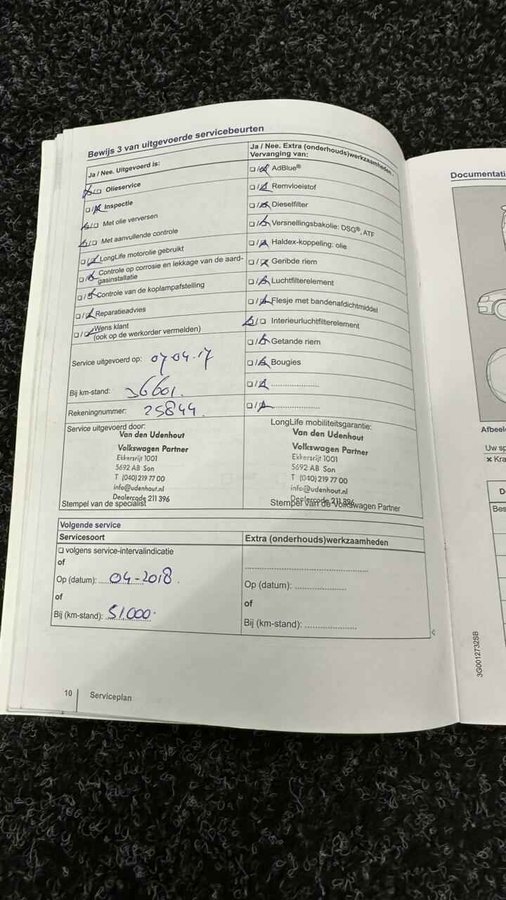 Bewijs 3 van uitgevoerde servicebeurten
Ja / Nee. Uitgevoerd is:
☐ Olieservice
☐ / ☐ Inspectie
☐ Met olie verversen
☐ Met aanvullende controle
☐ / ☐ LongLife motorolie gebruikt
☐ / ☐ Controle op corrosie en lekkage van de aard-
gasinstallatie
☐ / ☐ Controle van de koplampafstelling
☐ / ☐ Reparatieadvies
☐ / ☐ Wens klant
(ook op de werkorder vermelden)
Service uitgevoerd op: 07-04-17
Bij km-stand: 36601
Rekeningnummer: 25844
Service uitgevoerd door:
Van den Udenhout
Volkswagen Partner
Ekkersrijt 1001
5692 AB Son
T (040) 219 77 00
info@udenhout.nl
Dealercode 211 396
Stempel van de specialist
Ja / Nee. Extra (onderhouds)werkzaamheden
Vervanging van:
☐ / ☐ AdBlue®
☐ / ☐ Remvloeistof
☐ / ☐ Dieselfilter
☐ / ☐ Versnellingsbakolie: DSG®, ATF
☐ / ☐ Haldex-koppeling: olie
☐ / ☐ Geribde riem
☐ / ☐ Luchtfilterelement
☐ / ☐ Flesje met bandenafdichtmiddel
☐ / ☐ Interieurluchtfilterelement
☐ / ☐ Getande riem
☐ / ☐ Bougies
☐ / ☐ ....................
☐ / ☐ ....................
LongLife mobiliteitsgarantie:
Van den Udenhout
Volkswagen Partner
Ekkersrijt 1001
5692 AB Son
T (040) 219 77 00
info@udenhout.nl
Dealercode 211 396
Stempel van de Volkswagen Partner
Volgende service
Servicesoort
☐ volgens service-intervalindicatie
of
Op (datum): 04-2018
of
Bij (km-stand): 51000
Extra (onderhouds)werkzaamheden
..............................
Op (datum): ................
of
Bij (km-stand): ................
10 Serviceplan
Documentati
Afbeel
Uw sp
× Kra
D
Bes
3G0012732SB